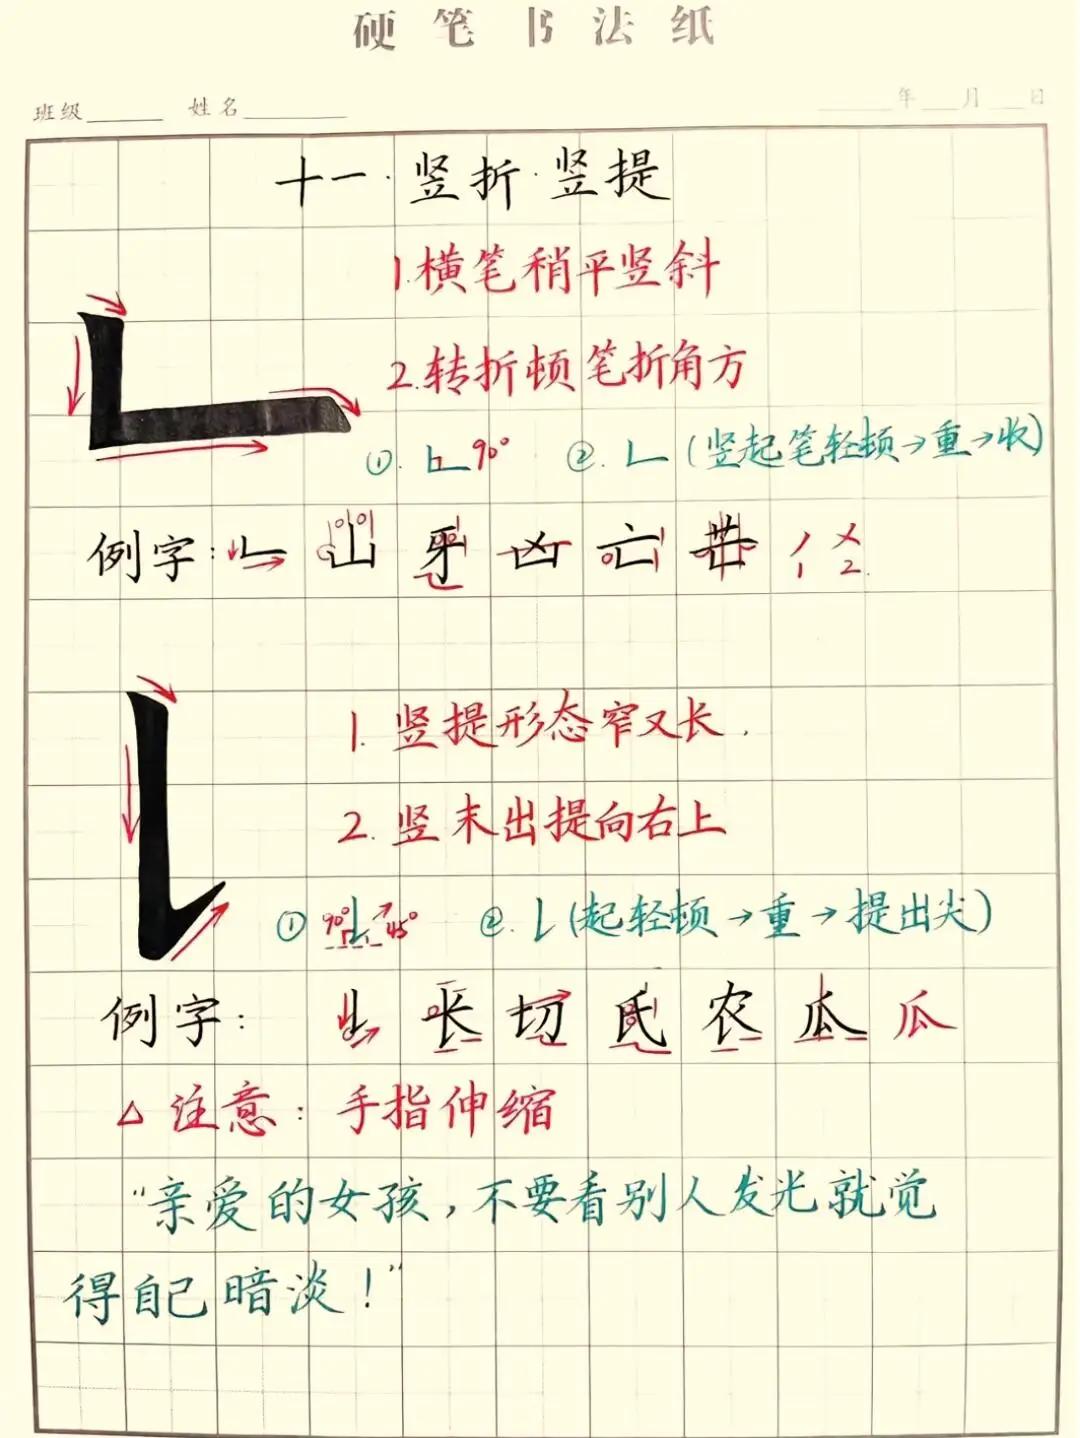 硬笔书法纸
班级 姓名 年 月 日
十一·竖折·竖提
1.横笔稍平竖斜
2.转折顿笔折角方
①. 90° ②. (竖起笔轻顿→重→收)
例字: 山 牙 凶 亡 世 1 2.
1. 竖提形态窄又长.
2. 竖末出提向右上
① 90° 45° ②. (起轻顿→重→提出尖)
例字: 长 切 氏 农 瓜 瓜
△ 注意: 手指伸缩
"亲爱的女孩,不要看别人发光就觉
得自己暗淡!"